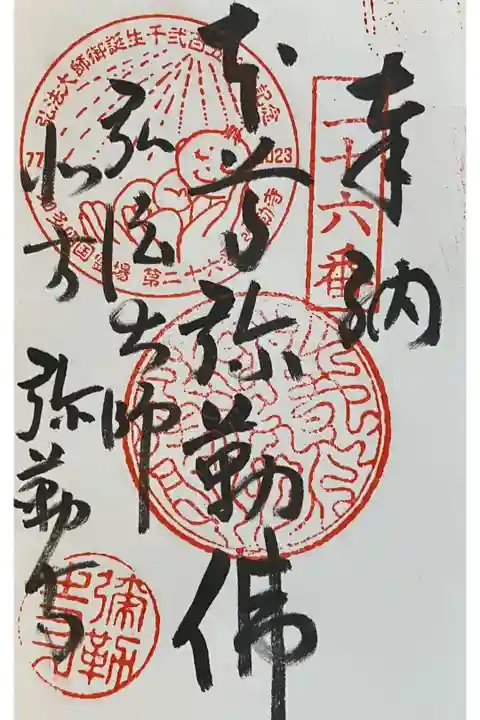 奉納
二十六番
本尊弥勒佛
弘法大師
北方 弥勒寺
弘法大師御誕生千弐百五十年記念
2023
知多四国霊場 第二十六番
彌勒